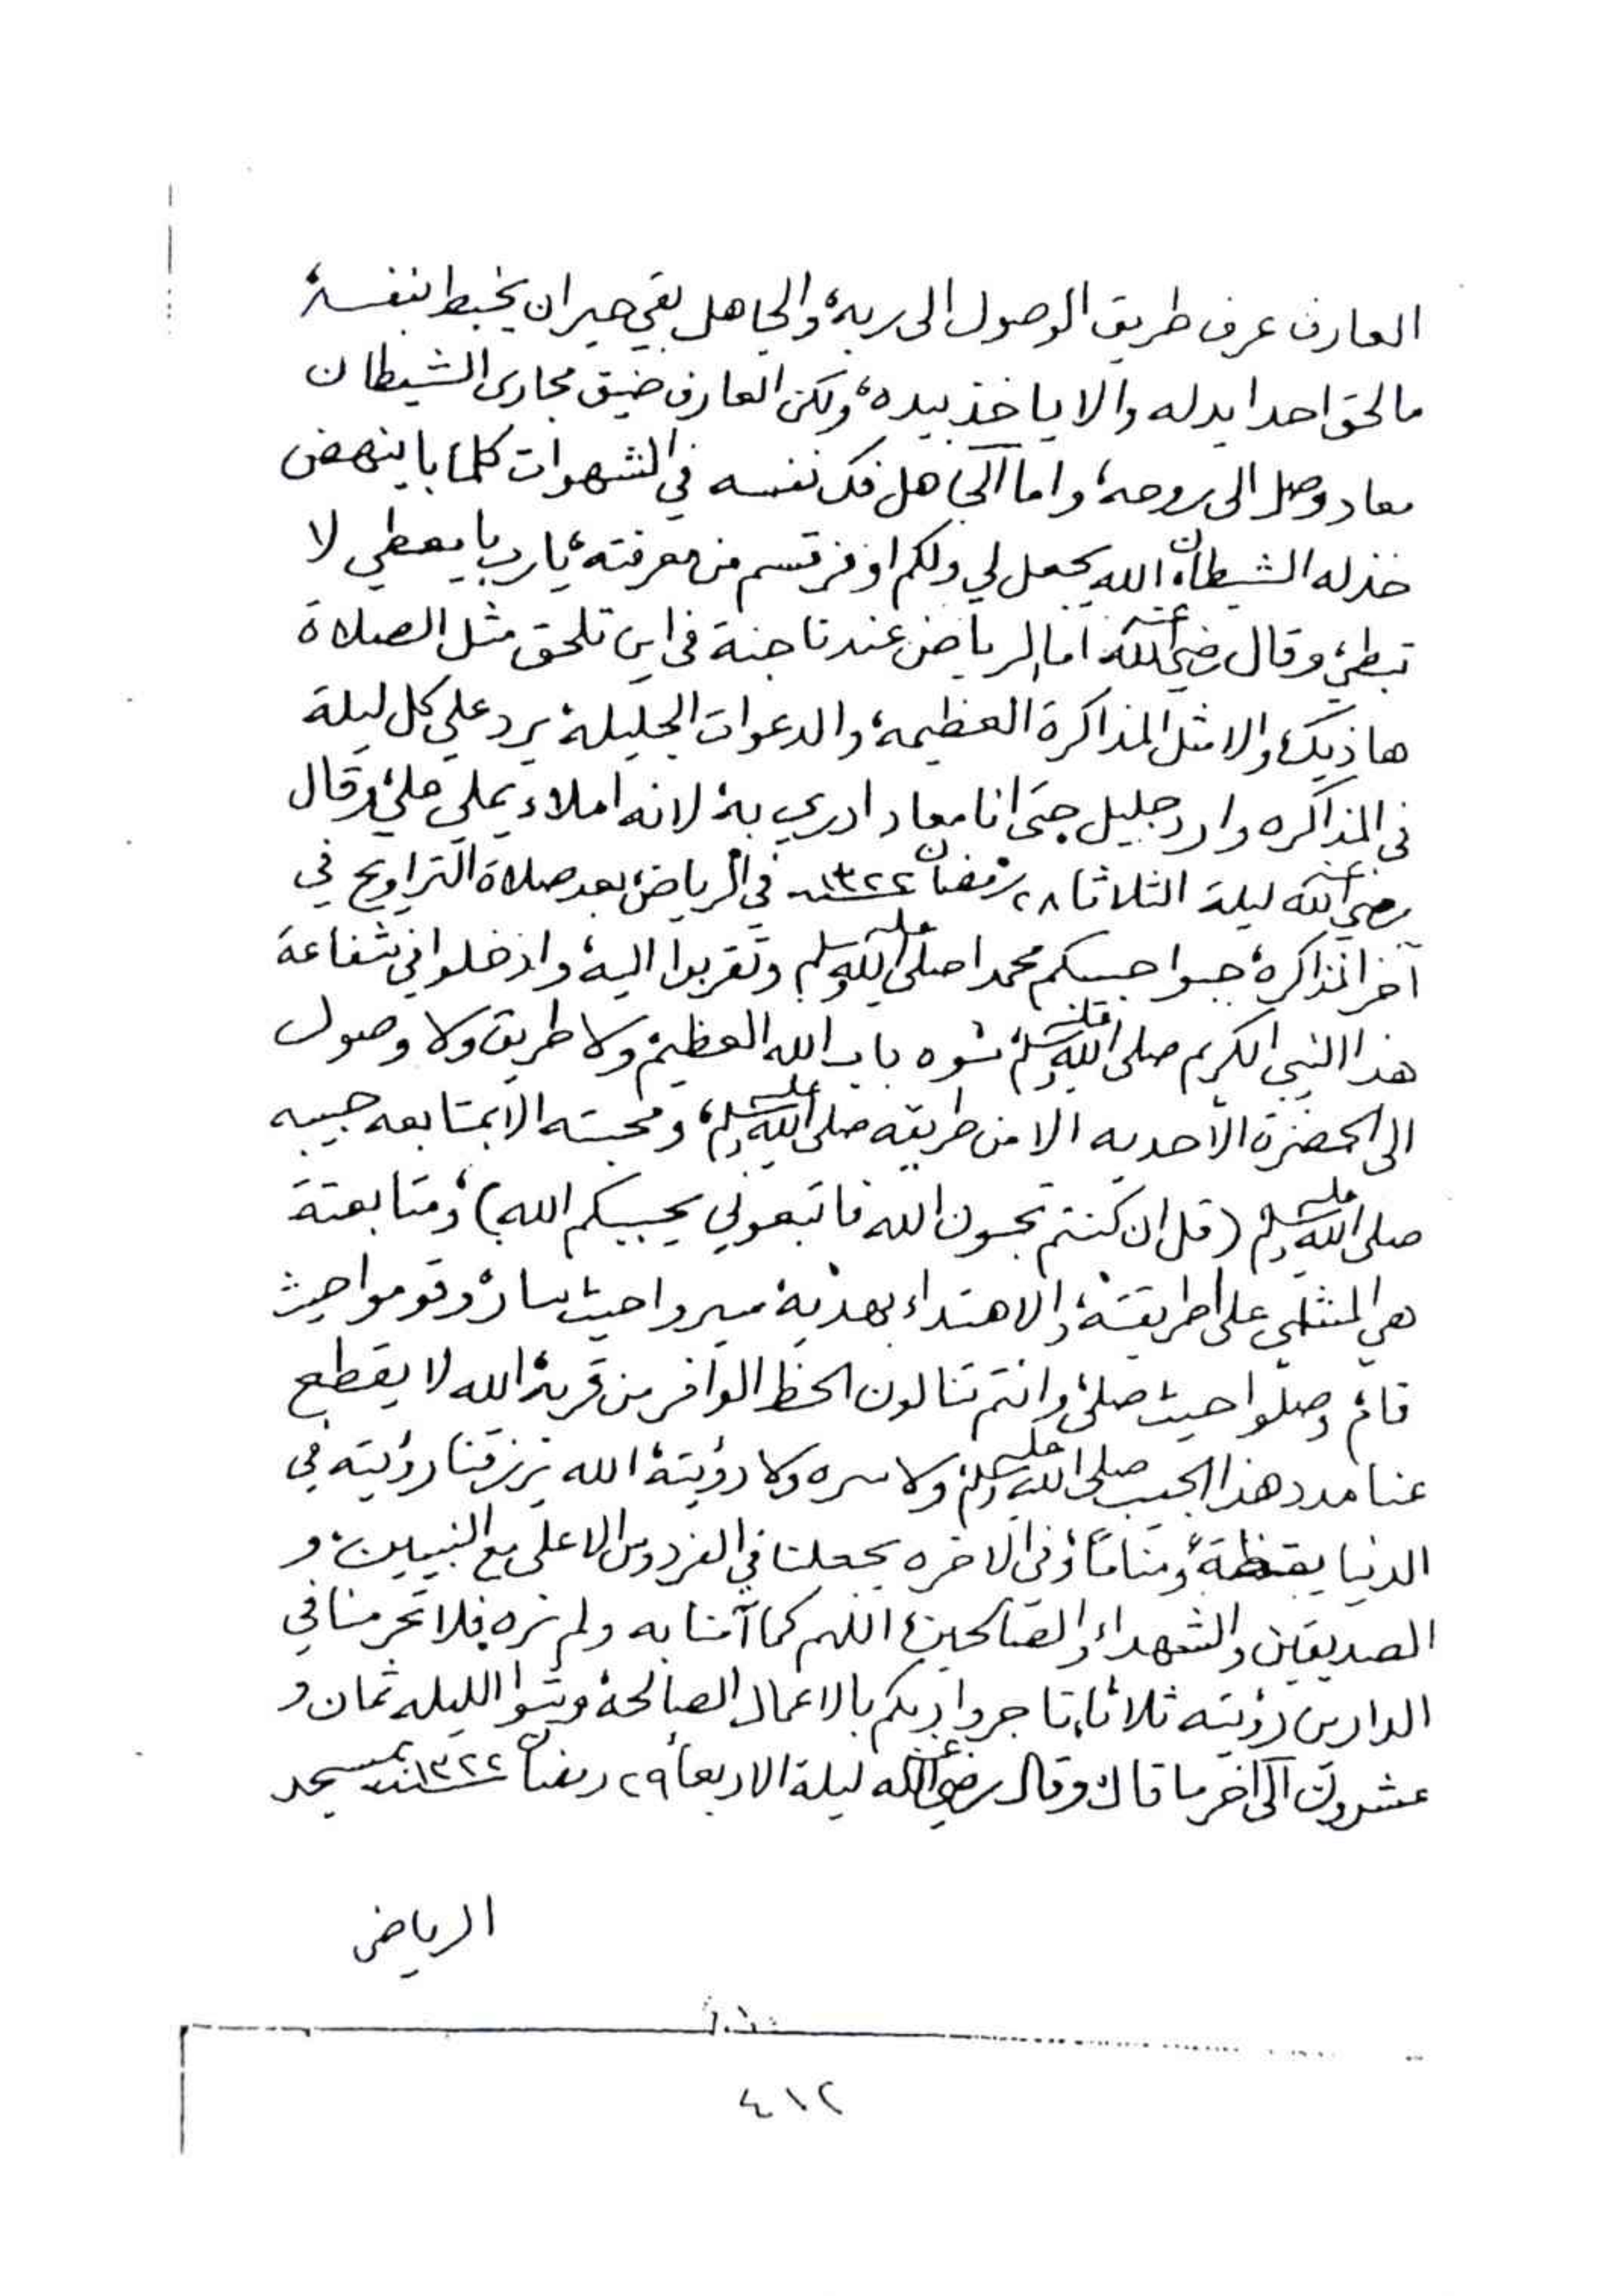 العارف عرف طريق الوصول الى ربه، والجاهل بقي حيران يخبط بنفسه،
مالحق احدا يدله والا ياخذ بيده، ولكن العارف ضيق مجارى الشيطان
معاد وصل الى روحه، واما الجاهل فك نفسه في الشهوات كلما باينهض
خذله الشيطان، الله يجعل لي ولكم اوفر قسم من معرفته، يارب يا معطي لا
تبطي، وقال رضي الله عنه اما الرياض عندنا جنة فى اين تلحق مثل الصلاة
هاذيك، والا مثل المذاكرة العظيمه، والدعوات الجليله، يرد علي كل ليلة
في المذاكره وارد جليل حتى انا معاد ادري به، لانه املاء يملى علي، وقال
رضي الله عنه ليلة الثلاثا ٢٨ رمضان سنة ١٣٢٢ في الرياض، بعد صلاة التراويح في
آخر المذاكره، حبوا حبيبكم محمدا صلى الله عليه وسلم وتقربوا اليه، وادخلوا في شفاعة
هذا النبي الكريم صلى الله عليه وسلم، شوه باب الله العظيم، ولا طريق ولا وصول
الى الحضرة الأحديه الا من طريقه صلى الله عليه وسلم، ومحبته الا بمتابعه حبيبه
صلى الله عليه وسلم (قل ان كنتم تحبون الله فاتبعوني يحببكم الله)، ومتابعته
هي المشي على طريقته، والاهتداء بهديه، سيروا حيث سار، وقوموا حيث
قام، وصلوا حيث صلى، وانتم تنالون الحظ الوافر من قربه، الله لا يقطع
عنا مدد هذا الحبيب صلى الله عليه وسلم، ولا سره ولا رؤيته، الله يرزقنا رؤيته في
الدنيا يقظة، ومناما، وفى الاخره يجعلنا في الفردوس الاعلى مع النبيين، و
الصديقين والشهداء، والصالحين، اللهم كما آمنا به ولم نره فلا تحرمنا في
الدارين رؤيته ثلاثا، تاجروا ربكم بالاعمال الصالحة، وشوا الليله ثمان و
عشرون الى آخر ما قال، وقال رضي الله عنه ليلة الاربعا ٢٩ رمضان سنة ١٣٢٢ بمسجد
الرياض
٤١٢